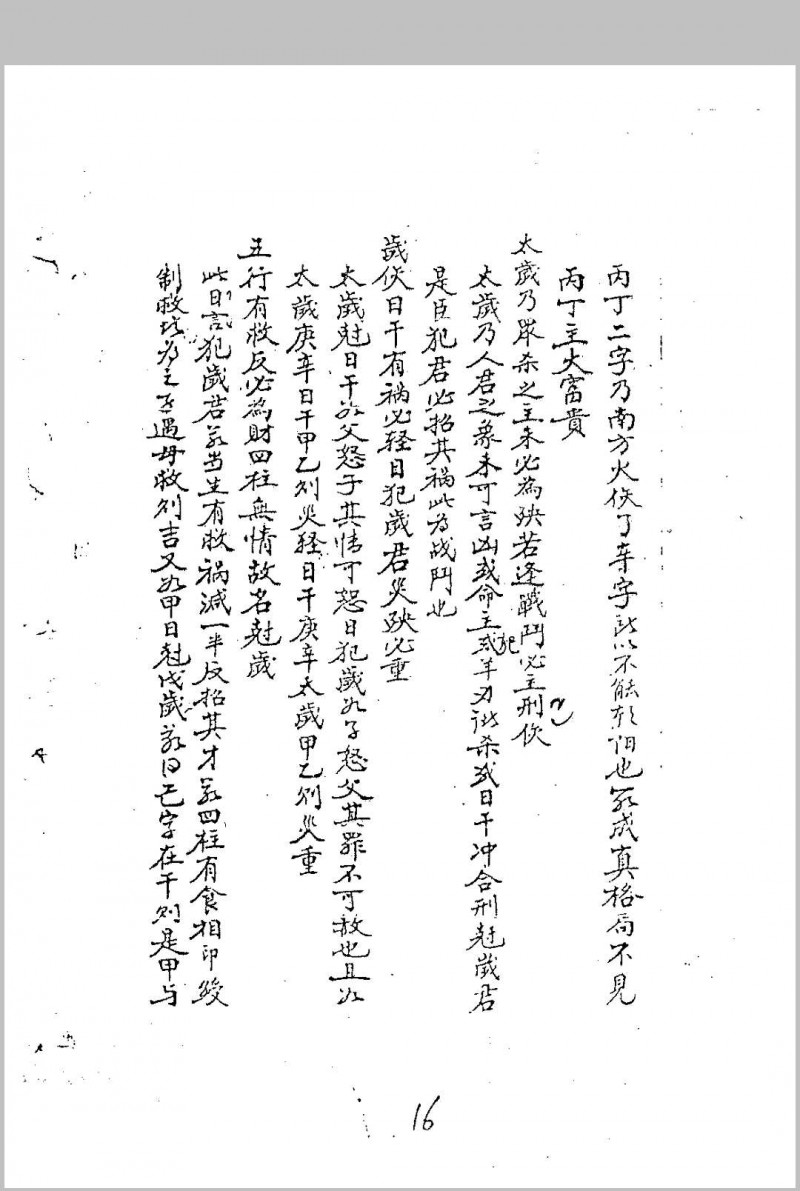 丙丁二字乃南方火伤了辛字所以不能也若成真格局不見
丙丁主大富貴
太歲乃眾杀之主未必為殃若逢戰鬥必主刑伤
太歲乃人君之象未可言凶或命主犯羊刃杀或日干冲合刑尅歲君
是臣犯君必招其祸此为战鬥也
歲伤日干有祸必轻日犯歲君災殃必重
太歲尅日干如父怒子其情可恕日犯歲如子怒父其罪不可赦也且如
太歲庚辛日干甲乙则災轻日干庚辛太歲甲乙则災重
五行有救反必為財四柱無情故名尅歲
此日言犯歲君若当生有救祸減一半反招其才若四柱有食相印綬
制救為之遇母救则吉又如甲日尅戊歲若己字在干则是甲与
16